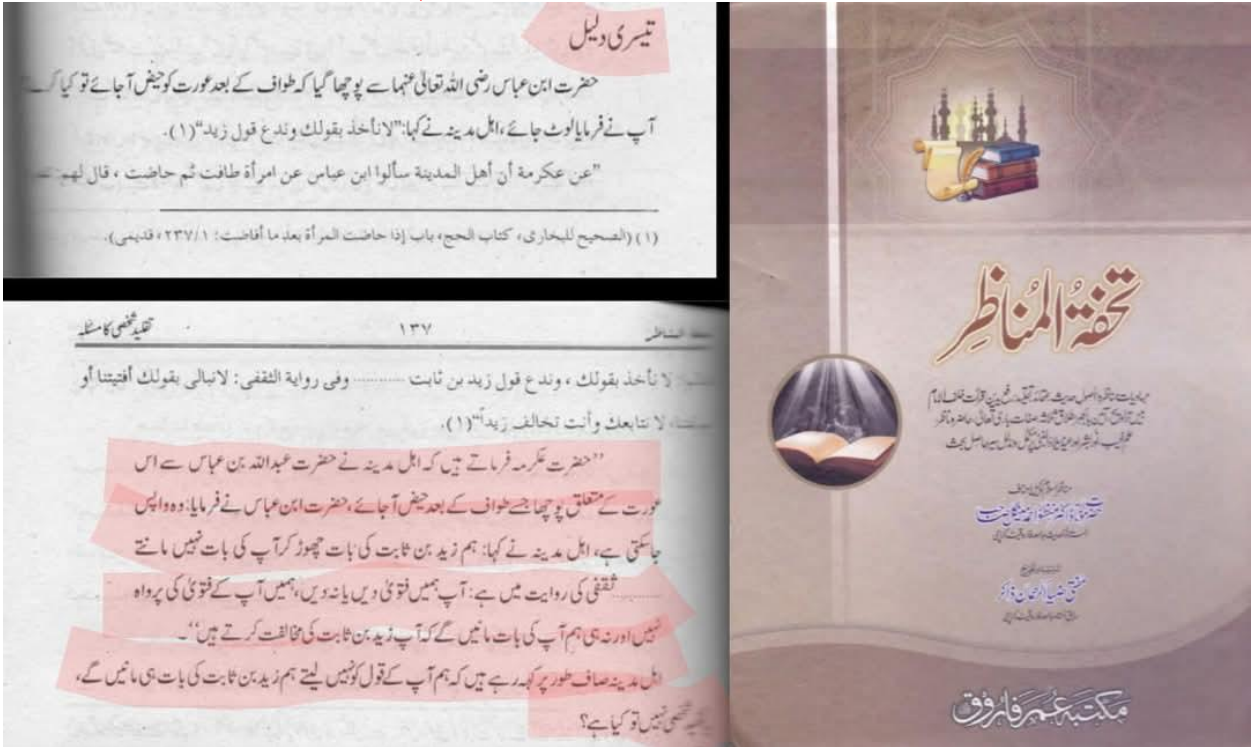 تیسری دلیل
حضرت ابن عباس رضی اللہ تعالیٰ عنہما سے پوچھا گیا کہ طواف کے بعد عورت کو حیض آجائے تو کیا کرے
آپ نے فرمایا لوٹ جائے، اہل مدینہ نے کہا: ”لانأخذ بقولك وندع قول زيد“ (۱).
”عن عكرمة أن أهل المدينة سألوا ابن عباس عن امرأة طافت ثم حاضت ، قال لهم:
(۱) (الصحيح للبخاری، كتاب الحج، باب إذا حاضت المرأة بعد ما أفاضت: ۲۳۷/۱، قدیمی).
۱۳۷ تقلید شخصی کا مسئلہ
لا نأخذ بقولك ، وندع قول زيد بن ثابت ............ وفى رواية الثقفى: لانبالى بقولك أفتيتنا أو
لا نتابعك وأنت تخالف زيداً“ (۱).
”حضرت عکرمہ فرماتے ہیں کہ اہل مدینہ نے حضرت عبداللہ بن عباس سے اس
عورت کے متعلق پوچھا جسے طواف کے بعد حیض آجائے، حضرت ابن عباس نے فرمایا: وہ واپس
جاسکتی ہے، اہل مدینہ نے کہا: ہم زید بن ثابت کی بات چھوڑ کر آپ کی بات نہیں مانتے
............ ثقفی کی روایت میں ہے: آپ ہمیں فتویٰ دیں یا نہ دیں، ہمیں آپ کے فتویٰ کی پرواہ
نہیں اور نہ ہی ہم آپ کی بات مانیں گے کہ آپ زید بن ثابت کی مخالفت کرتے ہیں“۔
اہل مدینہ صاف طور پر کہہ رہے ہیں کہ ہم آپ کے قول کو نہیں لیتے ہم زید بن ثابت کی بات ہی مانیں گے،
شخصی نہیں تو کیا ہے؟
تحفۃ المُناظِر
مکتبہ عمر فاروق